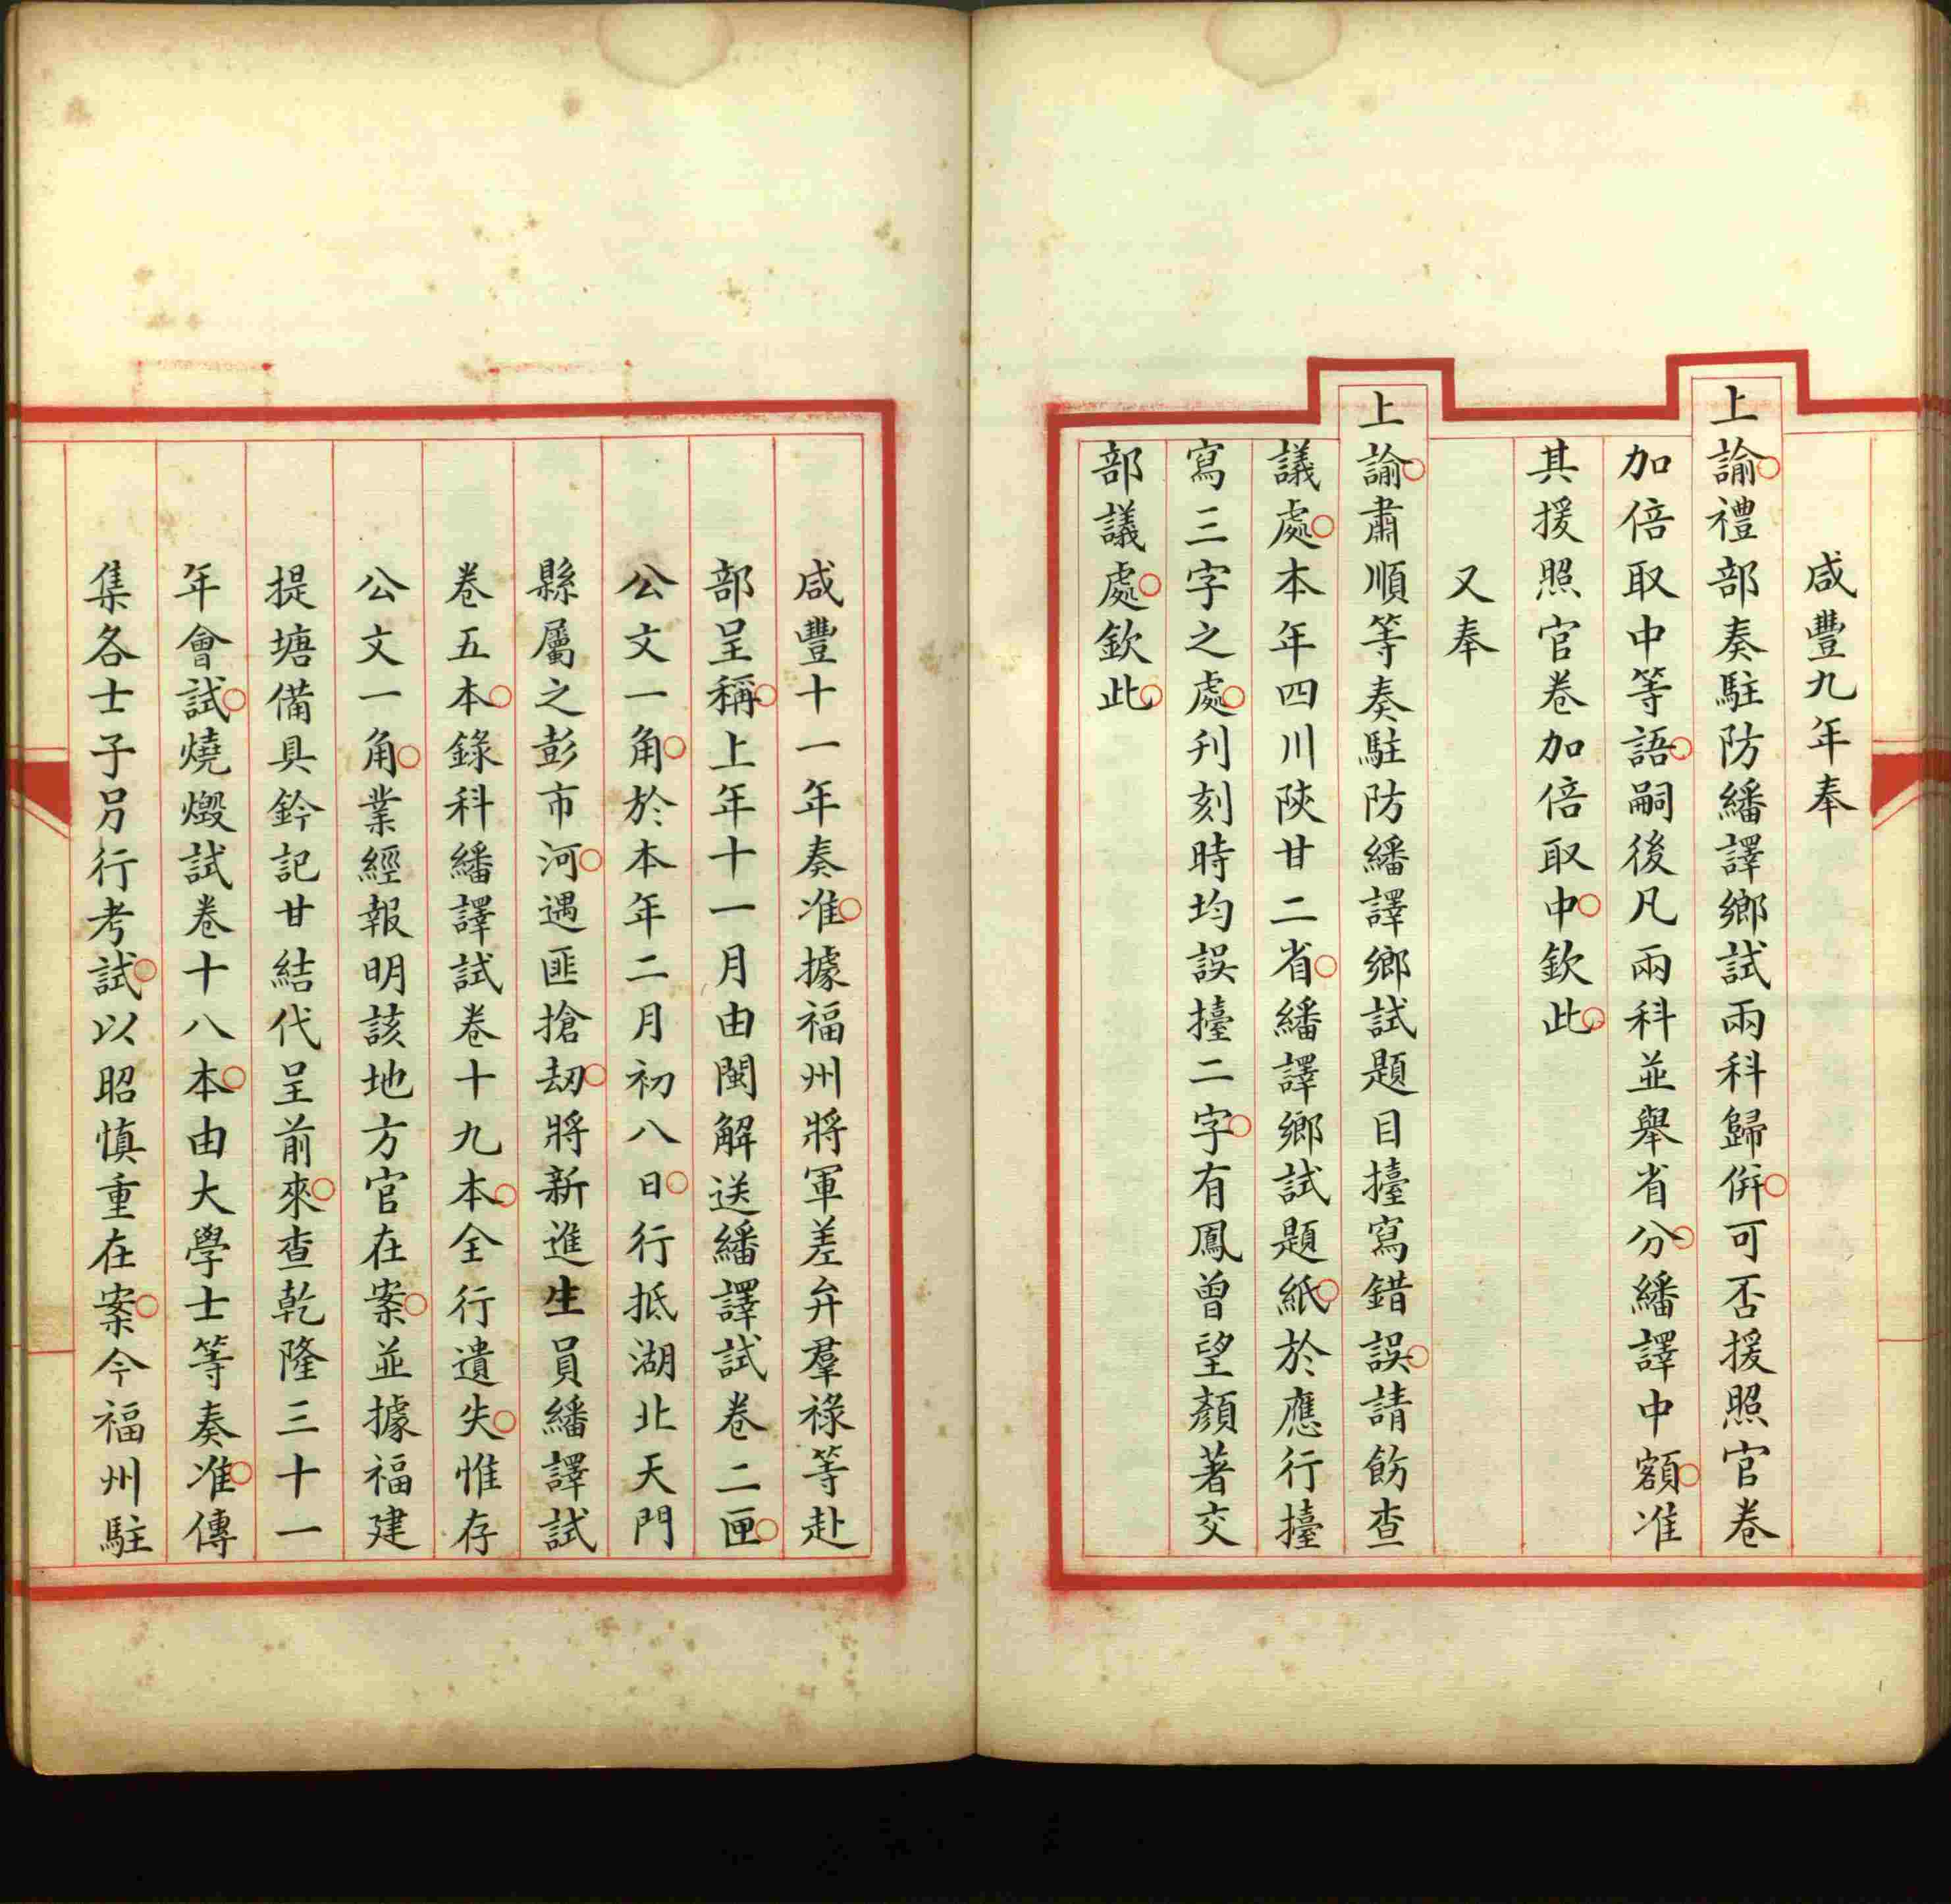 咸豐九年奉
上諭禮部奏駐防繙譯鄉試兩科歸併可否援照官卷
加倍取中等語嗣後凡兩科並舉省分繙譯中額准
其援照官卷加倍取中欽此
又奉
上諭肅順等奏駐防繙譯鄉試題目擡寫錯誤請飭查
議處本年四川陝甘二省繙譯鄉試題紙於應行擡
寫三字之處刋刻時均誤擡二字有鳳曾望顏著交
部議處欽此
咸豐十一年奏准據福州將軍差弁羣祿等赴
部呈稱上年十一月由閩解送繙譯試卷二匣
公文一角於本年二月初八日行抵湖北天門
縣屬之彭市河遇匪搶刼將新進生員繙譯試
卷五本錄科繙譯試卷十九本全行遺失惟存
公文一角業經報明該地方官在案並據福建
提塘備具鈐記甘結代呈前來查乾隆三十一
年會試燒燬試卷十八本由大學士等奏准傳
集各士子另行考試以昭慎重在案今福州駐